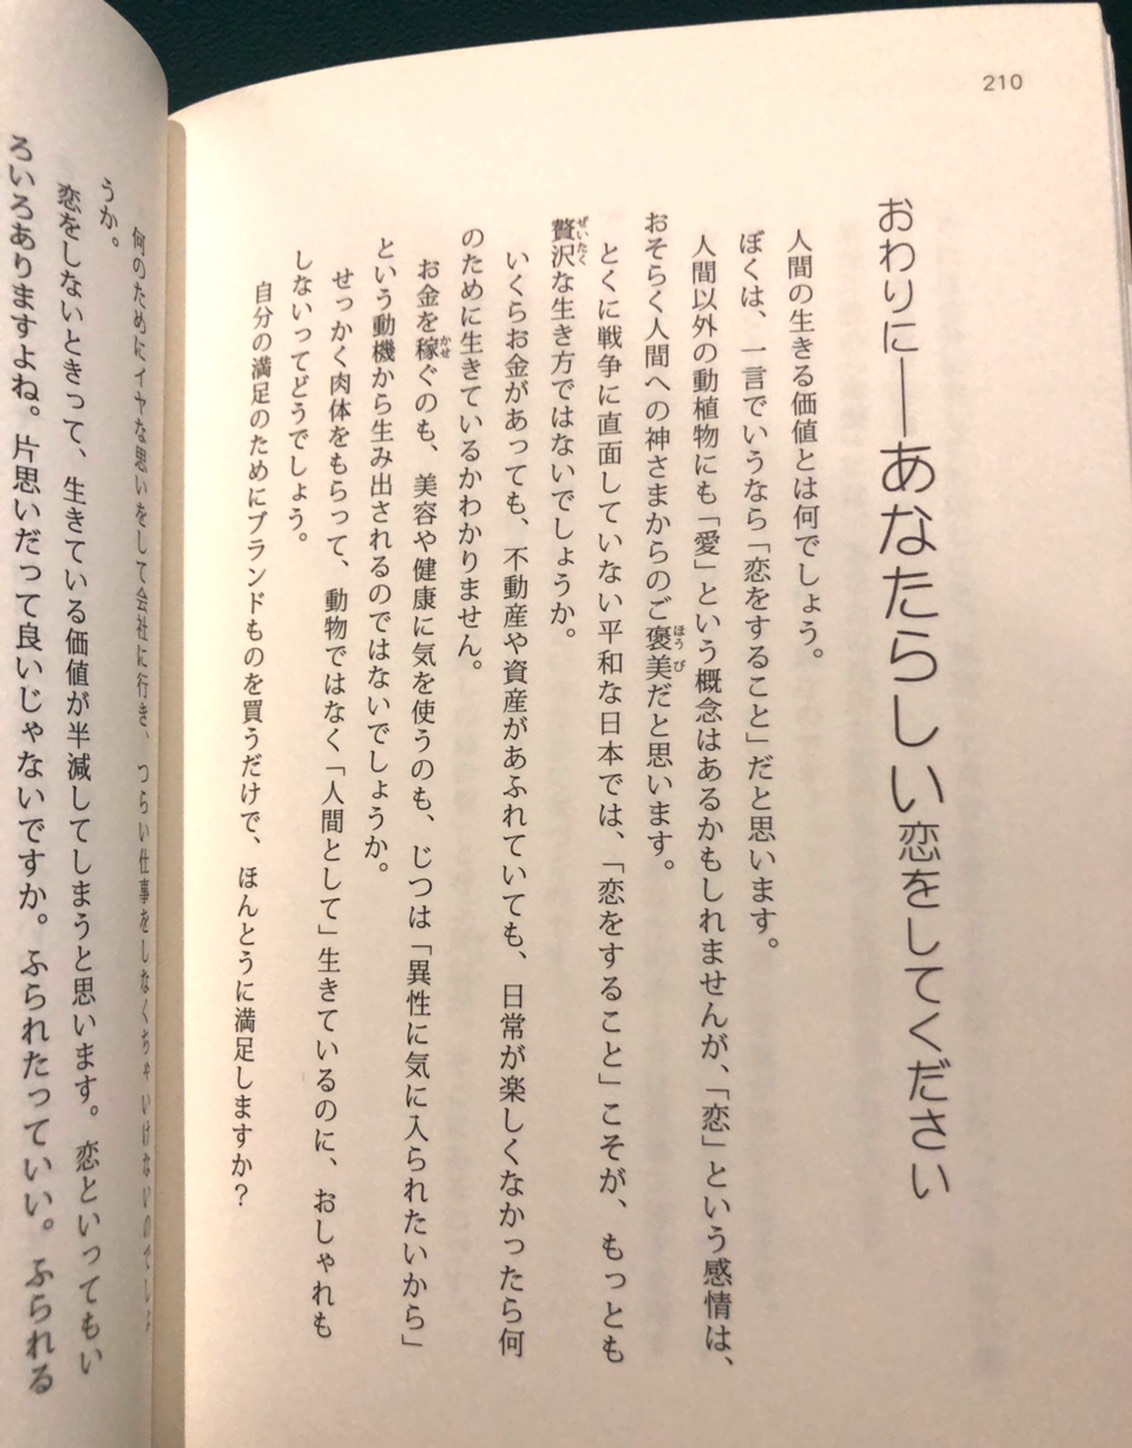 210
おわりに――あなたらしい恋をしてください
人間の生きる価値とは何でしょう。
ぼくは、一言でいうなら「恋をすること」だと思います。
人間以外の動植物にも「愛」という概念はあるかもしれませんが、「恋」という感情は、
おそらく人間への神さまからのご褒美だと思います。
とくに戦争に直面していない平和な日本では、「恋をすること」こそが、もっとも
贅沢な生き方ではないでしょうか。
いくらお金があっても、不動産や資産があふれていても、日常が楽しくなかったら何
のために生きているかわかりません。
お金を稼ぐのも、美容や健康に気を使うのも、じつは「異性に気に入られたいから」
という動機から生み出されるのではないでしょうか。
せっかく肉体をもらって、動物ではなく「人間として」生きているのに、おしゃれも
しないってどうでしょう。
自分の満足のためにブランドものを買うだけで、ほんとうに満足しますか？
何のためにイヤな思いをして会社に行き、つらい仕事をしなくちゃいけないのでしょ
うか。
恋をしないときって、生きている価値が半減してしまうと思います。恋といってもい
ろいろありますよね。片思いだって良いじゃないですか。ふられたっていい。ふられる